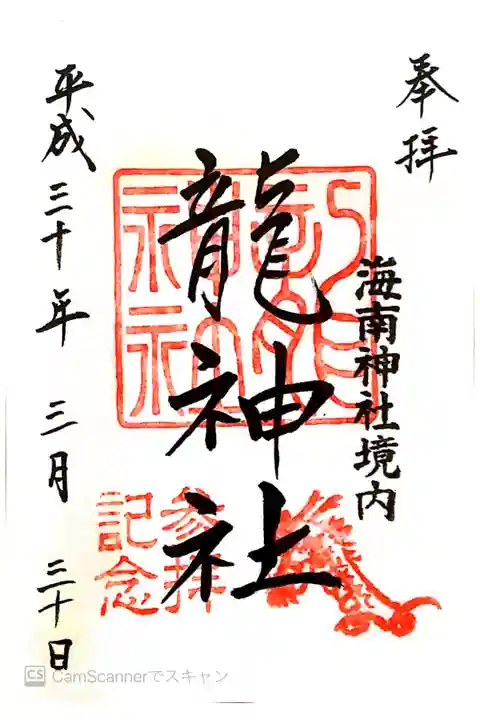 奉拝
海南神社境内
龍神社
参拝
記念
平成三十年 三月 三十日
CS CamScannerでスキャン